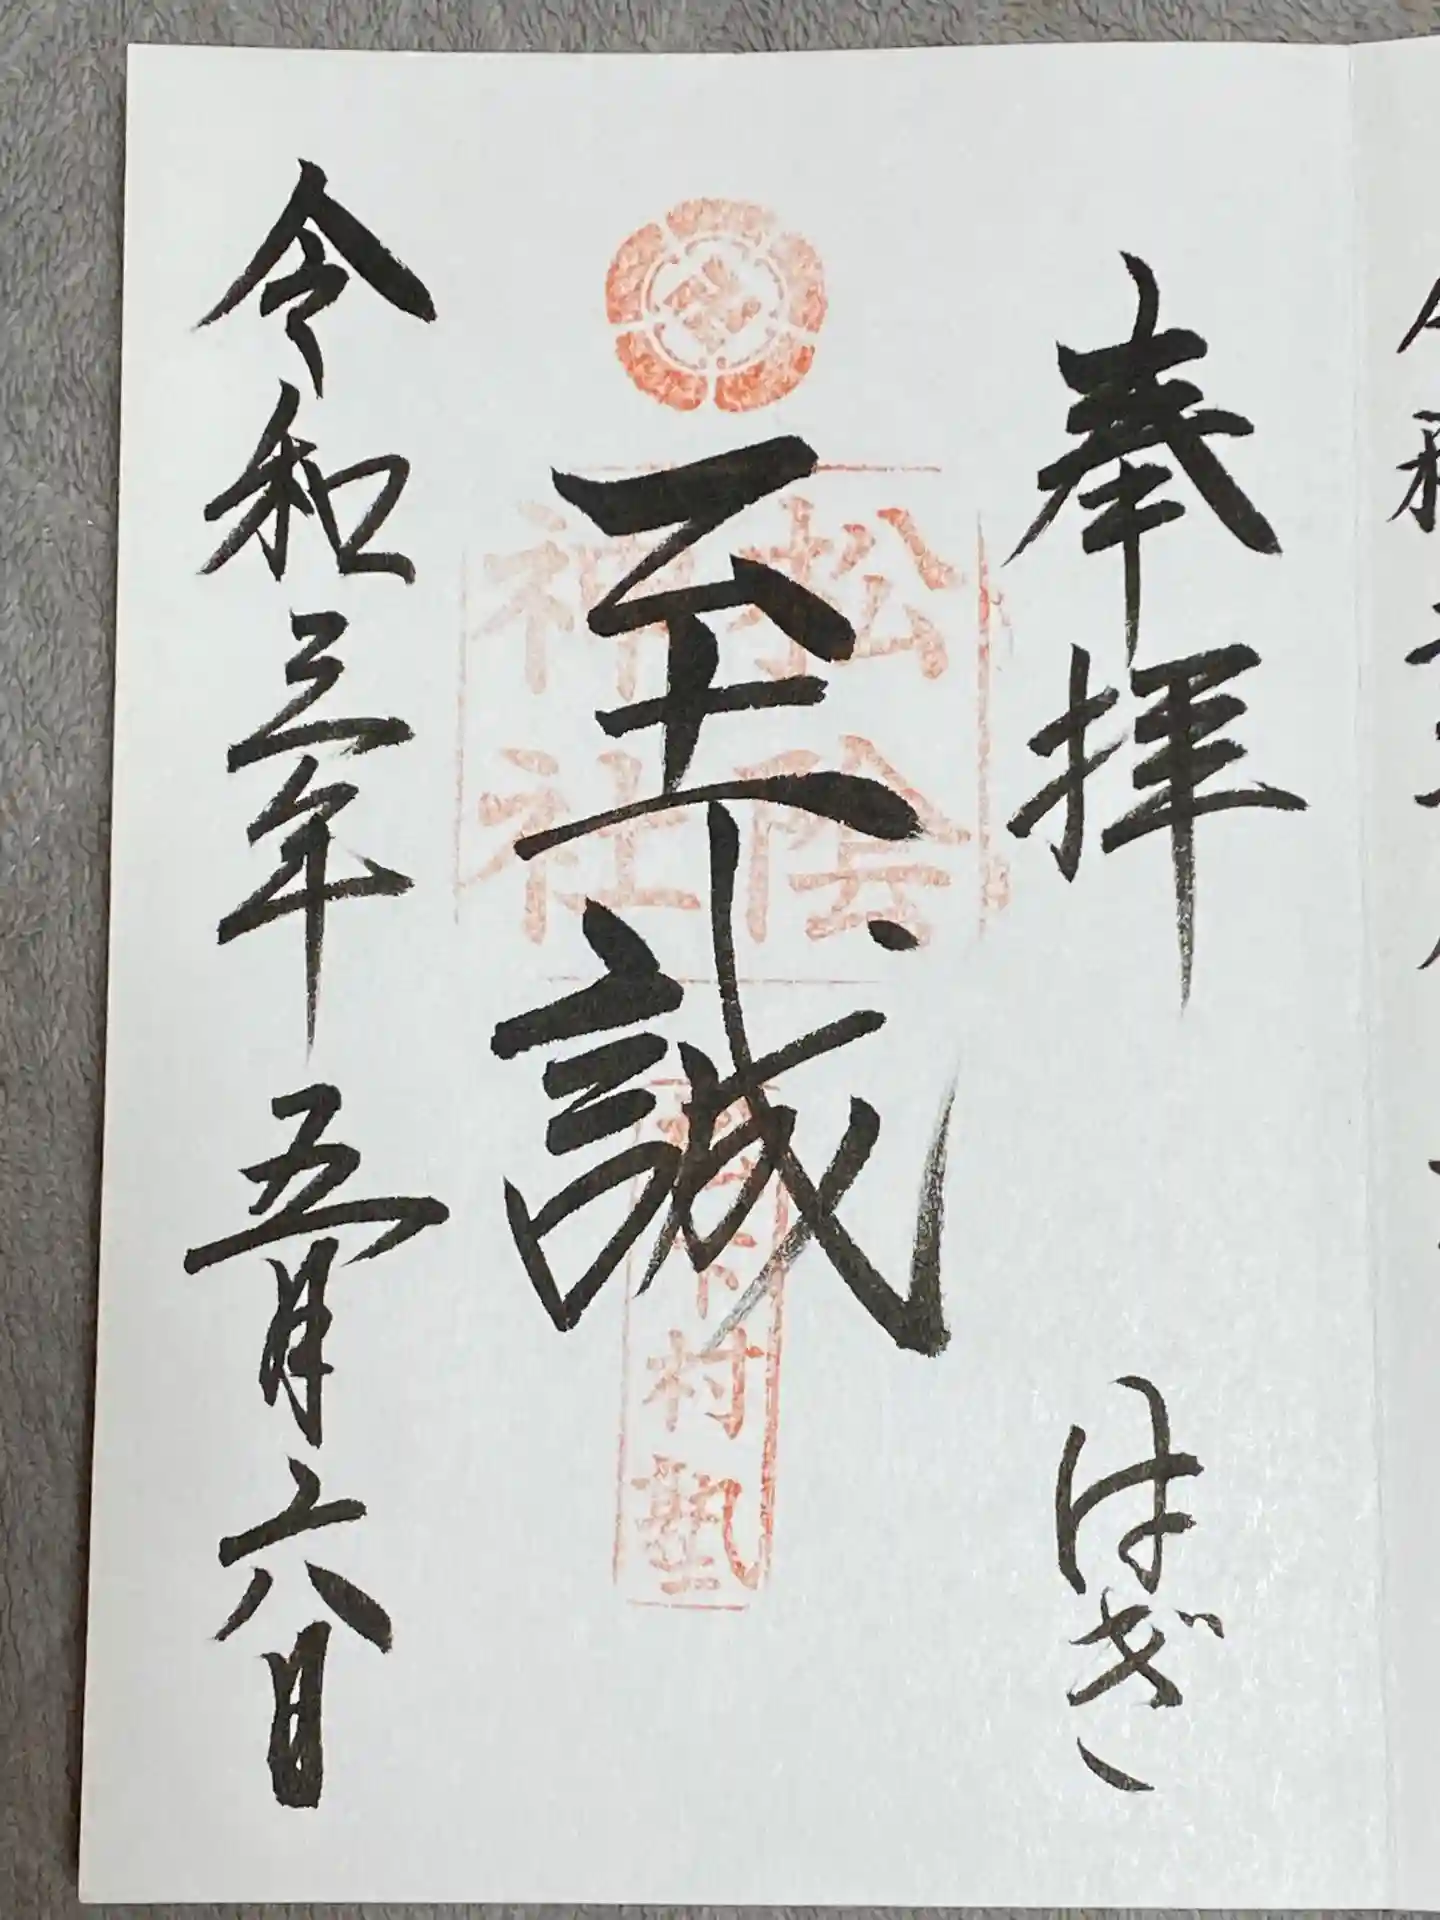 奉拝 はぎ
至誠
松陰
神社
松下村塾
令和三年 五月六日